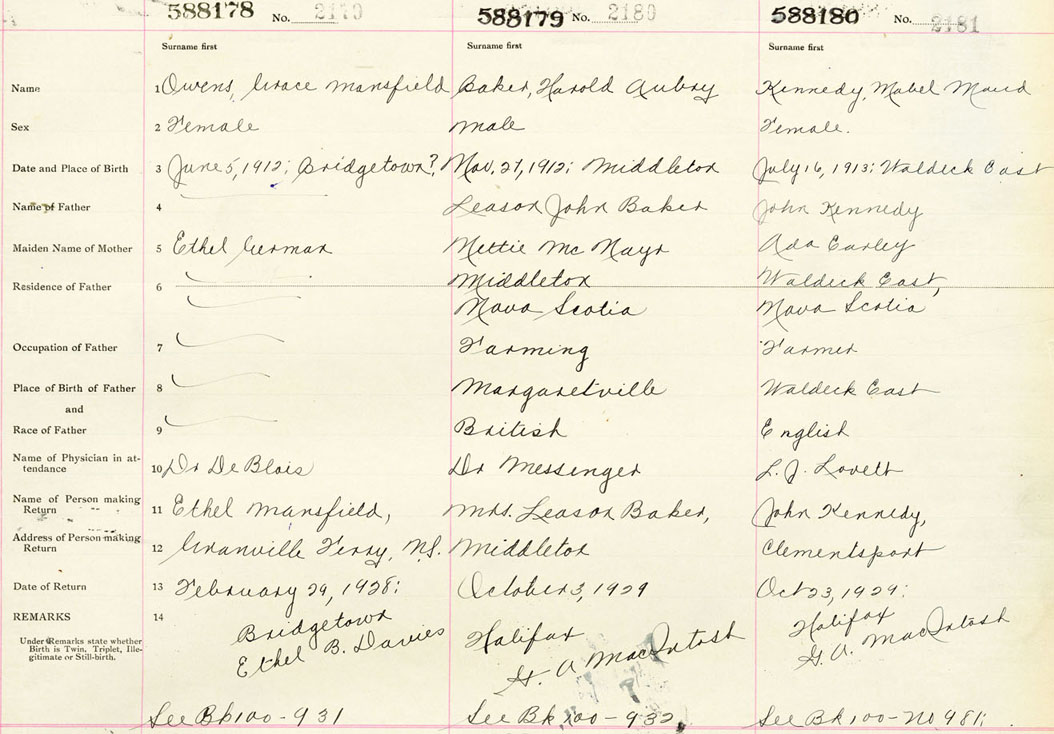 588178 No. 2179 588179 No. 2180 588180 No. 2181
Surname first Surname first Surname first
Name 1 Owens, Grace Mansfield Baker, Harold Aubry Kennedy, Mabel Maud
Sex 2 Female Male Female.
Date and Place of Birth 3 June 5, 1912; Bridgetown? Nov. 27, 1912; Middleton July 16, 1913; Waldeck East
Name of Father 4 Leason John Baker John Kennedy
Maiden Name of Mother 5 Ethel German Nettie Mc Nayr Ada Earley
Residence of Father 6 Middleton Waldeck East,
Nova Scotia Nova Scotia
Occupation of Father 7 Farming Farmer
Place of Birth of Father 8 Margaretville Waldeck East
and
Race of Father 9 British English
Name of Physician in at-
tendance 10 Dr De Blois Dr Messenger L. J. Lovett
Name of Person making
Return 11 Ethel Mansfield, Mrs. Leason Baker, John Kennedy,
Address of Person making
Return 12 Granville Ferry, N.S. Middleton Clementsport
Date of Return 13 February 29, 1928; October 3, 1929 Oct 23, 1929;
REMARKS 14 Bridgetown Halifax Halifax
Under Remarks state whether
Birth is Twin, Triplet, Ille-
gitimate or Still-birth.
Ethel B. Davies G. A MacIntosh G. A. MacIntosh
See Bk 100 - 931 See Bk 100 - 932 See Bk 100 - No 981;